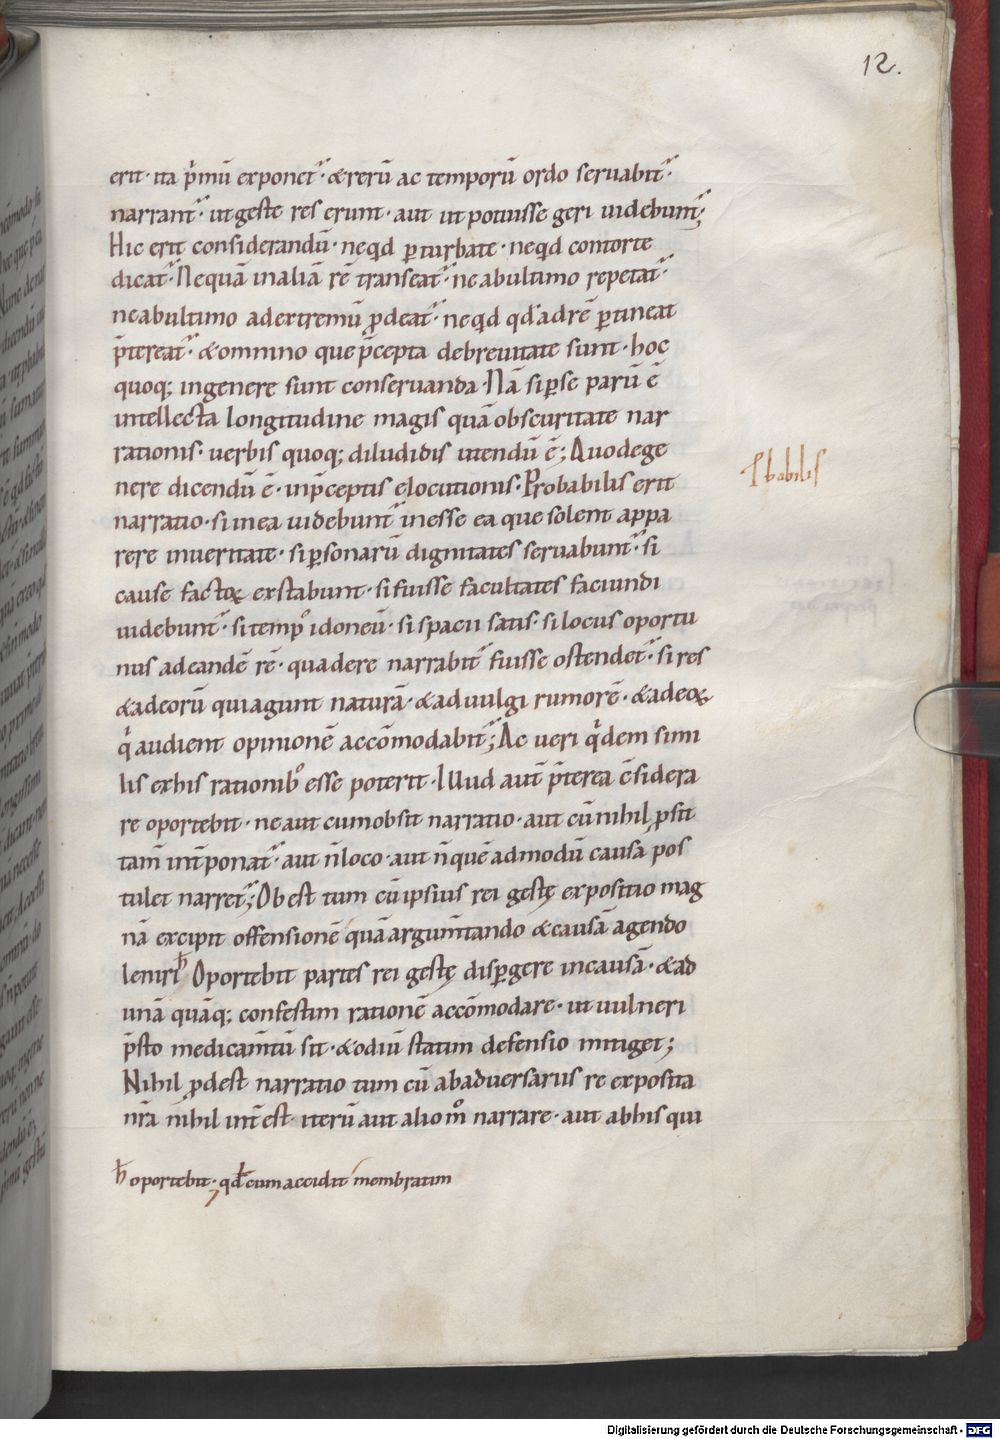 12.
erit· ita p̾mū exponet᷑·&rerū ac temporū ordo seruabit᷑·
narrant᷑· ut geste res erunt· aut ut potuisse geri uidebunt᷑;
Hic erit considerandū· neqd ꝑturbate· neqd contorte
dicat᷑· Nequā inaliā rē transeat᷑· ne abultimo repetat᷑·
ne abultimo adextremū ꝓdeat᷑· neqd qd adrē ꝑtineat
p̄tereat᷑· &omnino que p̄cepta debreuitate sunt· hoc
quoq; ingenere sunt conseruanda· Nā siꝑse parū ē
intellecta longitudine magis quā obscuritate nar
rationis· uerbis quoq; diludidis utendū ē; Quodege
nere dicendū ē· inp̄ceptis elocutionis· Probabilis erit
ꝓbabilis
narratio· si inea uidebunt᷑ inesse ea que solent appa
rere inueritate· si ꝑsonarū dignitates seruabunt᷑· si
cause factoꝝ exstabunt· si fuisse facultates faciundi
uidebunt᷑· si tempꝰ idoneū· si spacii satis· si locus oportu
nus adeandē rē· quadere narrabit᷑ fuisse ostendet᷑· si res
&adeorū quiagunt naturā· &aduulgi rumorē· &adeoꝝ
q̾ audient opinionē accōmodabit᷑; Ac ueri q̾dem simi
lis exhis rationibꝰ esse poterit· Illud aut̄ p̄terea ɔ̄sidera
re oportebit· ne aut cumobsit narratio· aut cū nihil ꝓsit
tam̄ int̄ponat᷑· aut n̄ loco· aut n̄ quē admodū causa pos
tulet narret᷑; Obest tum cū ipsius rei gestę expositio mag
nā excipit offensionē quā argum̄tando &causā agendo
leniri ħ Oportebit partes rei gestę disꝑgere incausā· &ad
unā quāq; confestim rationē accōmodare· ut uulneri
p̄sto medicam̄tū sit· &odiū statim defensio mitiget;
Nihil ꝓdest narratio tum cū abaduersarus re exposita
nr̄a nihil int̄est· iterū aut alio mͦ narrare· aut abhis qui
ħ oportebit· qđ cum accidit membratim
Digitalisierung gefördert durch die Deutsche Forschungsgemeinschaft - DFG